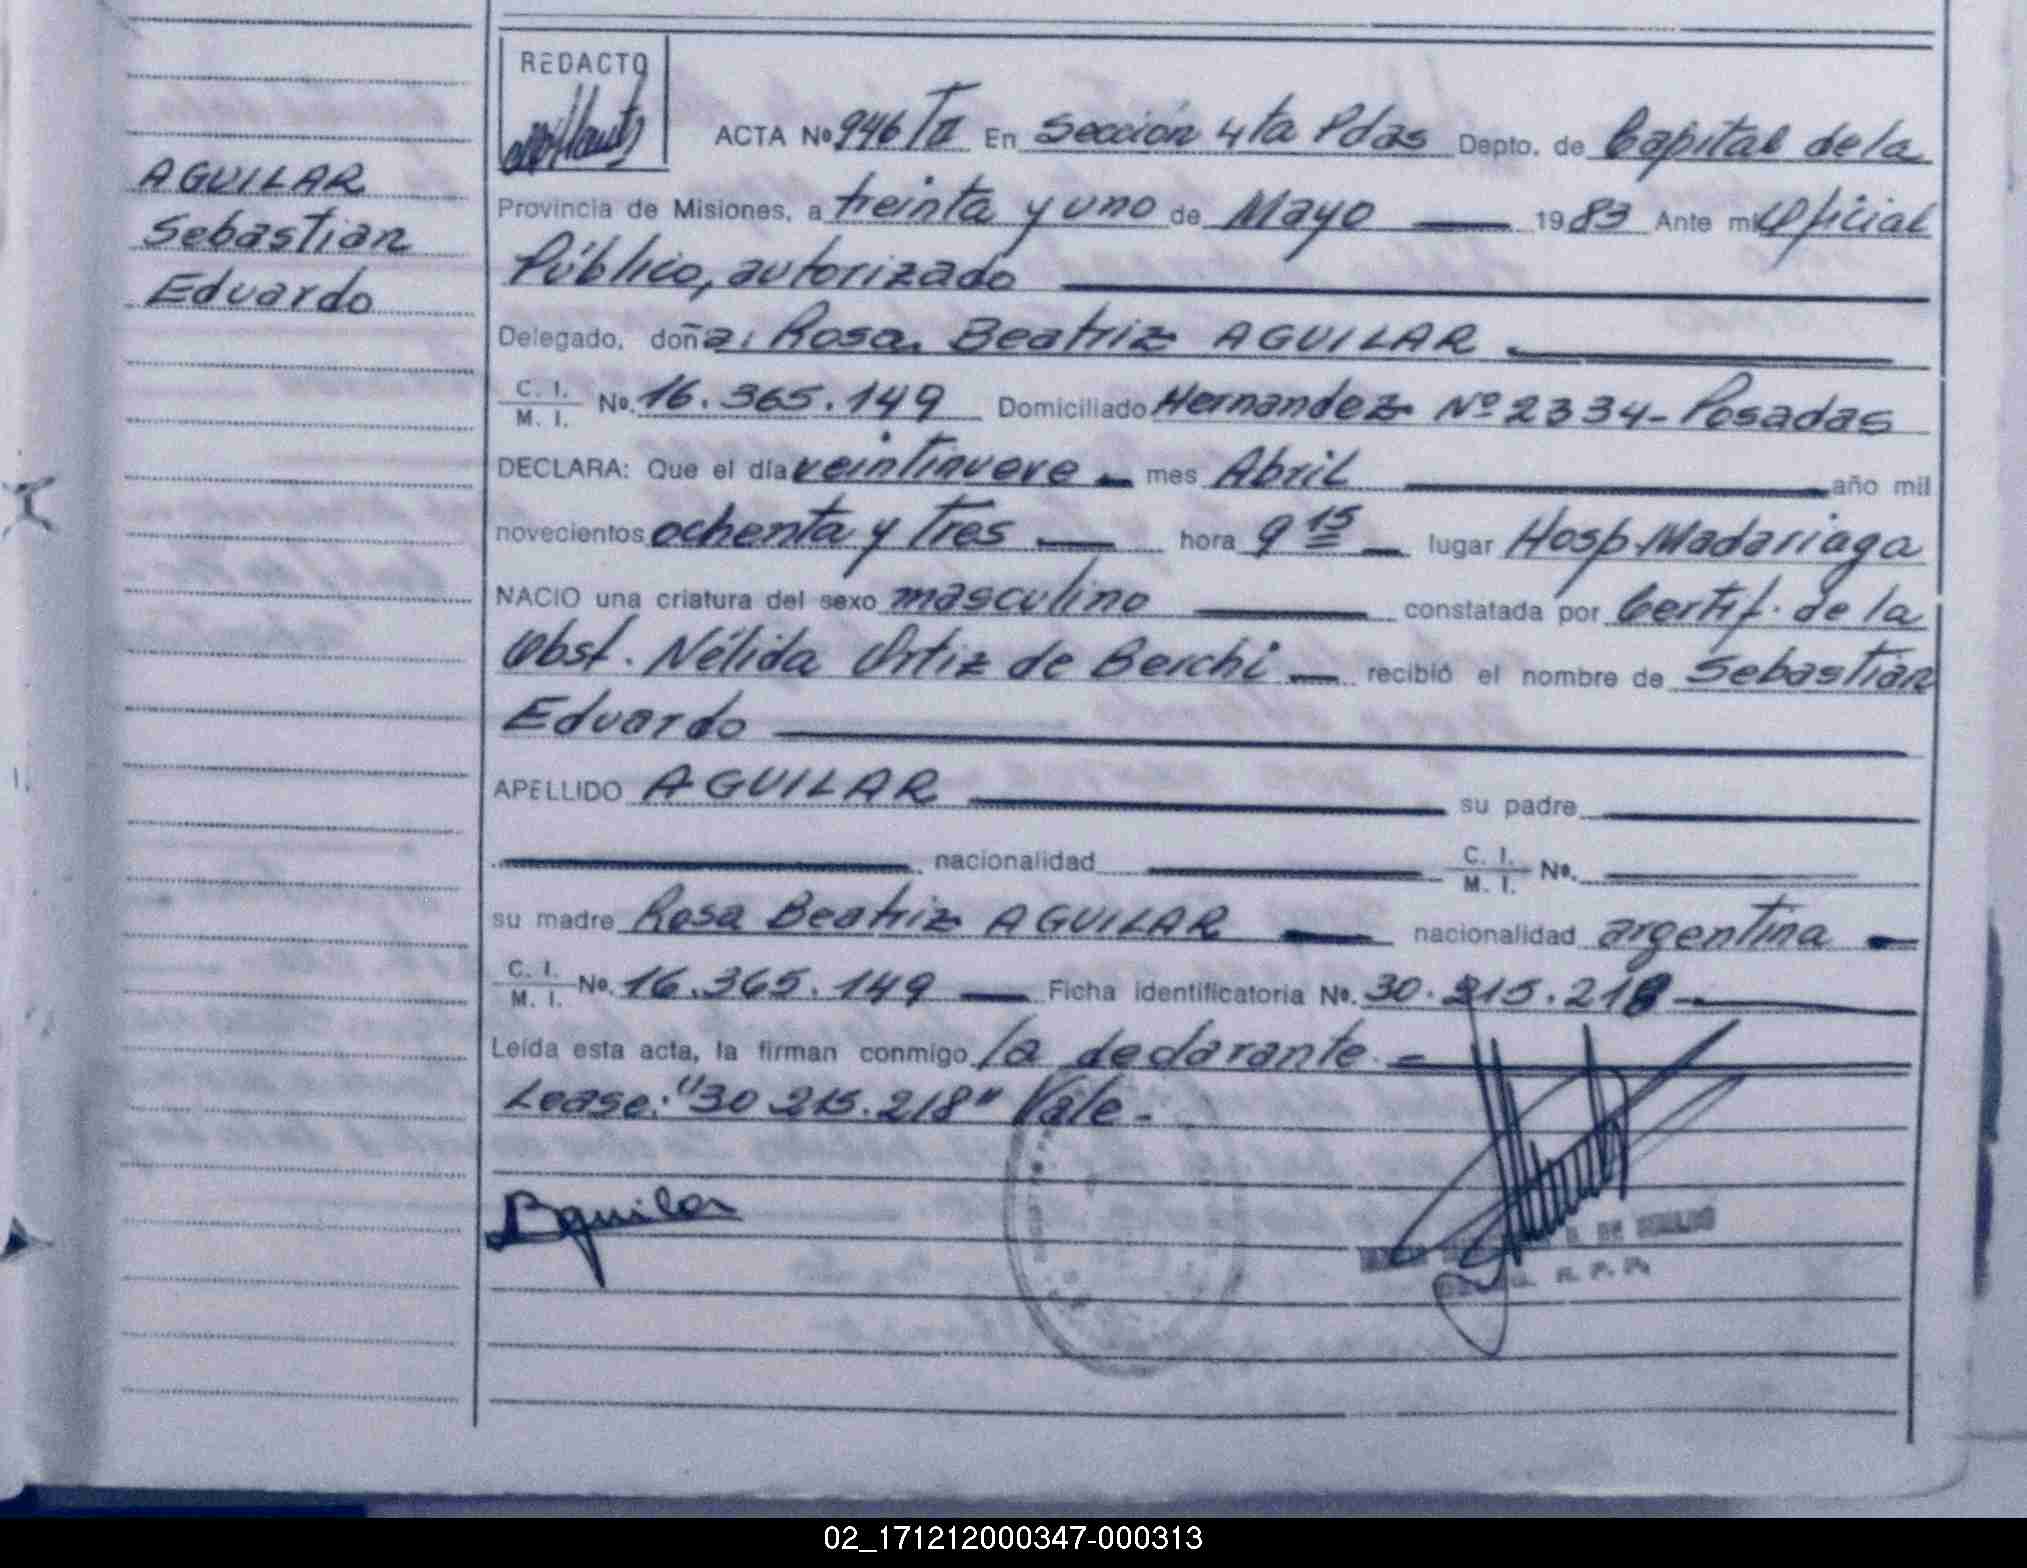 REDACTO
ACTA Nº 946 TII En Sección 4ta Pdas Depto. de Capital de la
AGUILAR
Sebastian
Eduardo
Provincia de Misiones, a treinta y uno de Mayo 1983 Ante mi Oficial
Público, autorizado
Delegado, doña: Rosa Beatriz AGUILAR
C. I. M. I. Nº. 16.365.149 Domiciliado Hernandez Nº 2334- Posadas
DECLARA: Que el día veintinueve mes Abril año mil
novecientos ochenta y tres hora 9 15 lugar Hosp. Madariaga
NACIO una criatura del sexo masculino constatada por Certif. de la
Obst. Nélida Ortiz de Berchi recibió el nombre de Sebastian
Eduardo
APELLIDO AGUILAR su padre
nacionalidad C. I. M. I. Nº.
su madre Rosa Beatriz AGUILAR nacionalidad argentina
C. I. M. I. Nº. 16.365.149 Ficha identificatoria Nº. 30.215.218
Leída esta acta, la firman conmigo la declarante.
Lease: "30 215.218" Vale-
Aguilar
02_171212000347-000313